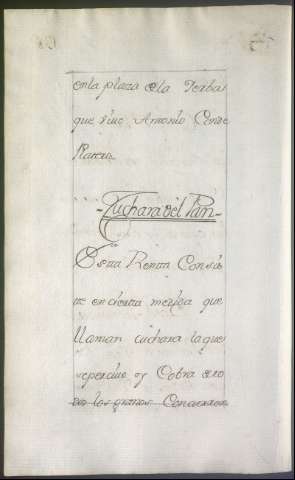 en la plaza de la Yerba
que vive Antonio Conde
-Cuchara del Pan-
Esta Renta Consis
te en cierta medida que
llaman cuchara la que
se percive oy Cobra de to
dos los granos